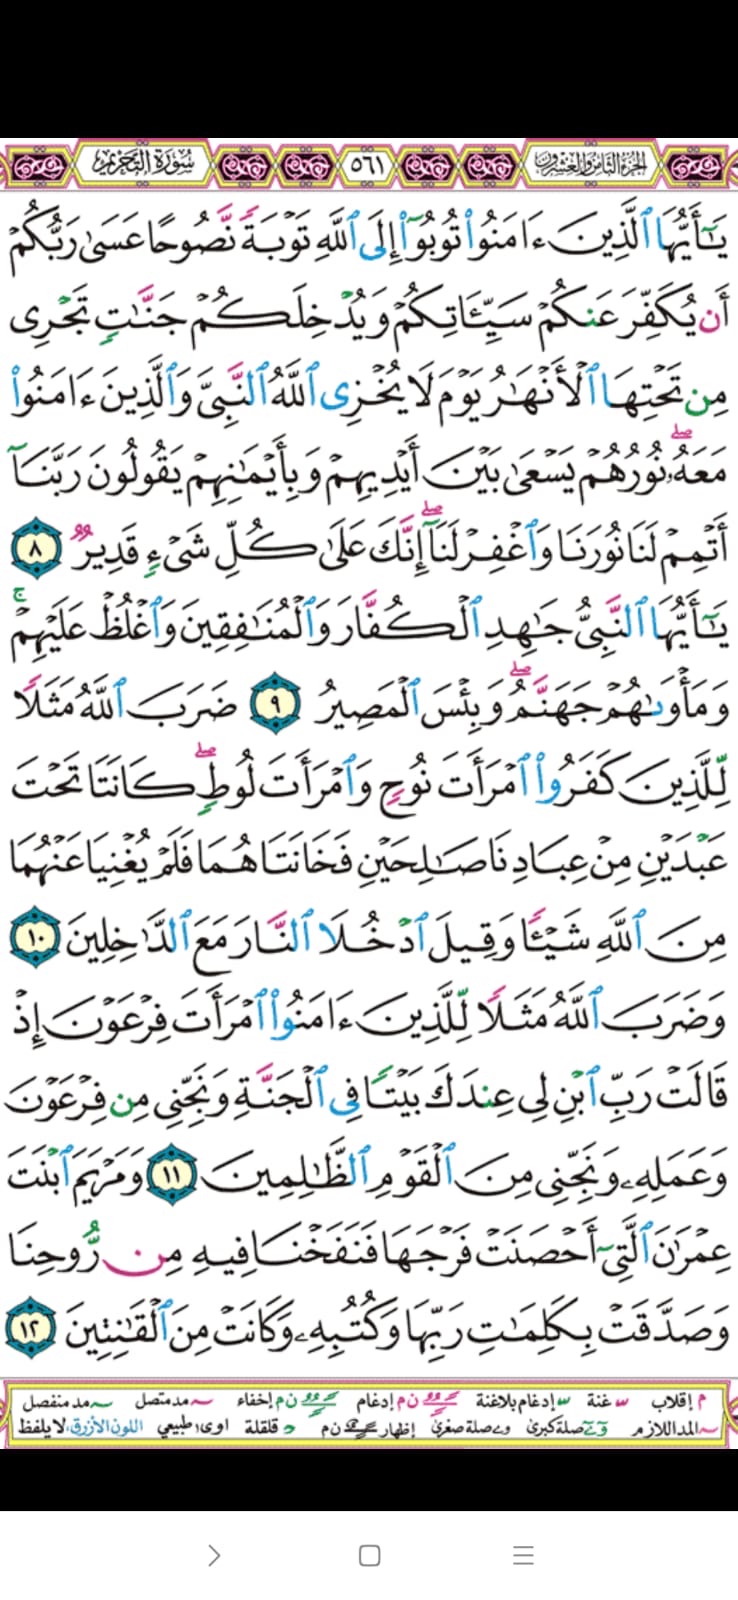 الجزء الثامن والعشرون ٥٦١ سورة التحريم
يَٰٓأَيُّهَا ٱلَّذِينَ ءَامَنُواْ تُوبُوٓاْ إِلَى ٱللَّهِ تَوۡبَةٗ نَّصُوحًا عَسَىٰ رَبُّكُمۡ
أَن يُكَفِّرَ عَنكُمۡ سَيِّـَٔاتِكُمۡ وَيُدۡخِلَكُمۡ جَنَّٰتٖ تَجۡرِي
مِن تَحۡتِهَا ٱلۡأَنۡهَٰرُ يَوۡمَ لَا يُخۡزِي ٱللَّهُ ٱلنَّبِيَّ وَٱلَّذِينَ ءَامَنُواْ
مَعَهُۥۖ نُورُهُمۡ يَسۡعَىٰ بَيۡنَ أَيۡدِيهِمۡ وَبِأَيۡمَٰنِهِمۡ يَقُولُونَ رَبَّنَآ
أَتۡمِمۡ لَنَا نُورَنَا وَٱغۡفِرۡ لَنَآۖ إِنَّكَ عَلَىٰ كُلِّ شَيۡءٖ قَدِيرٞ ٨
يَٰٓأَيُّهَا ٱلنَّبِيُّ جَٰهِدِ ٱلۡكُفَّارَ وَٱلۡمُنَٰفِقِينَ وَٱغۡلُظۡ عَلَيۡهِمۡۚ
وَمَأۡوَىٰهُمۡ جَهَنَّمُۖ وَبِئۡسَ ٱلۡمَصِيرُ ٩ ضَرَبَ ٱللَّهُ مَثَلٗا
لِّلَّذِينَ كَفَرُواْ ٱمۡرَأَتَ نُوحٖ وَٱمۡرَأَتَ لُوطٖۖ كَانَتَا تَحۡتَ
عَبۡدَيۡنِ مِنۡ عِبَادِنَا صَٰلِحَيۡنِ فَخَانَتَاهُمَا فَلَمۡ يُغۡنِيَا عَنۡهُمَا
مِنَ ٱللَّهِ شَيۡـٔٗا وَقِيلَ ٱدۡخُلَا ٱلنَّارَ مَعَ ٱلدَّٰخِلِينَ ١٠
وَضَرَبَ ٱللَّهُ مَثَلٗا لِّلَّذِينَ ءَامَنُواْ ٱمۡرَأَتَ فِرۡعَوۡنَ إِذۡ
قَالَتۡ رَبِّ ٱبۡنِ لِي عِندَكَ بَيۡتٗا فِي ٱلۡجَنَّةِ وَنَجِّنِي مِن فِرۡعَوۡنَ
وَعَمَلِهِۦ وَنَجِّنِي مِنَ ٱلۡقَوۡمِ ٱلظَّٰلِمِينَ ١١ وَمَرۡيَمَ ٱبۡنَتَ
عِمۡرَٰنَ ٱلَّتِيٓ أَحۡصَنَتۡ فَرۡجَهَا فَنَفَخۡنَا فِيهِ مِن رُّوحِنَا
وَصَدَّقَتۡ بِكَلِمَٰتِ رَبِّهَا وَكُتُبِهِۦ وَكَانَتۡ مِنَ ٱلۡقَٰنِتِينَ ١٢
م إقلاب غنة إدغام بلاغنة ن م إدغام ن م إخفاء مد متصل مد منفصل
المد اللازم صلة كبرى صلة صغرى إظهار ن م قلقلة اوى طبيعي اللون الأزرق، لا يلفظ